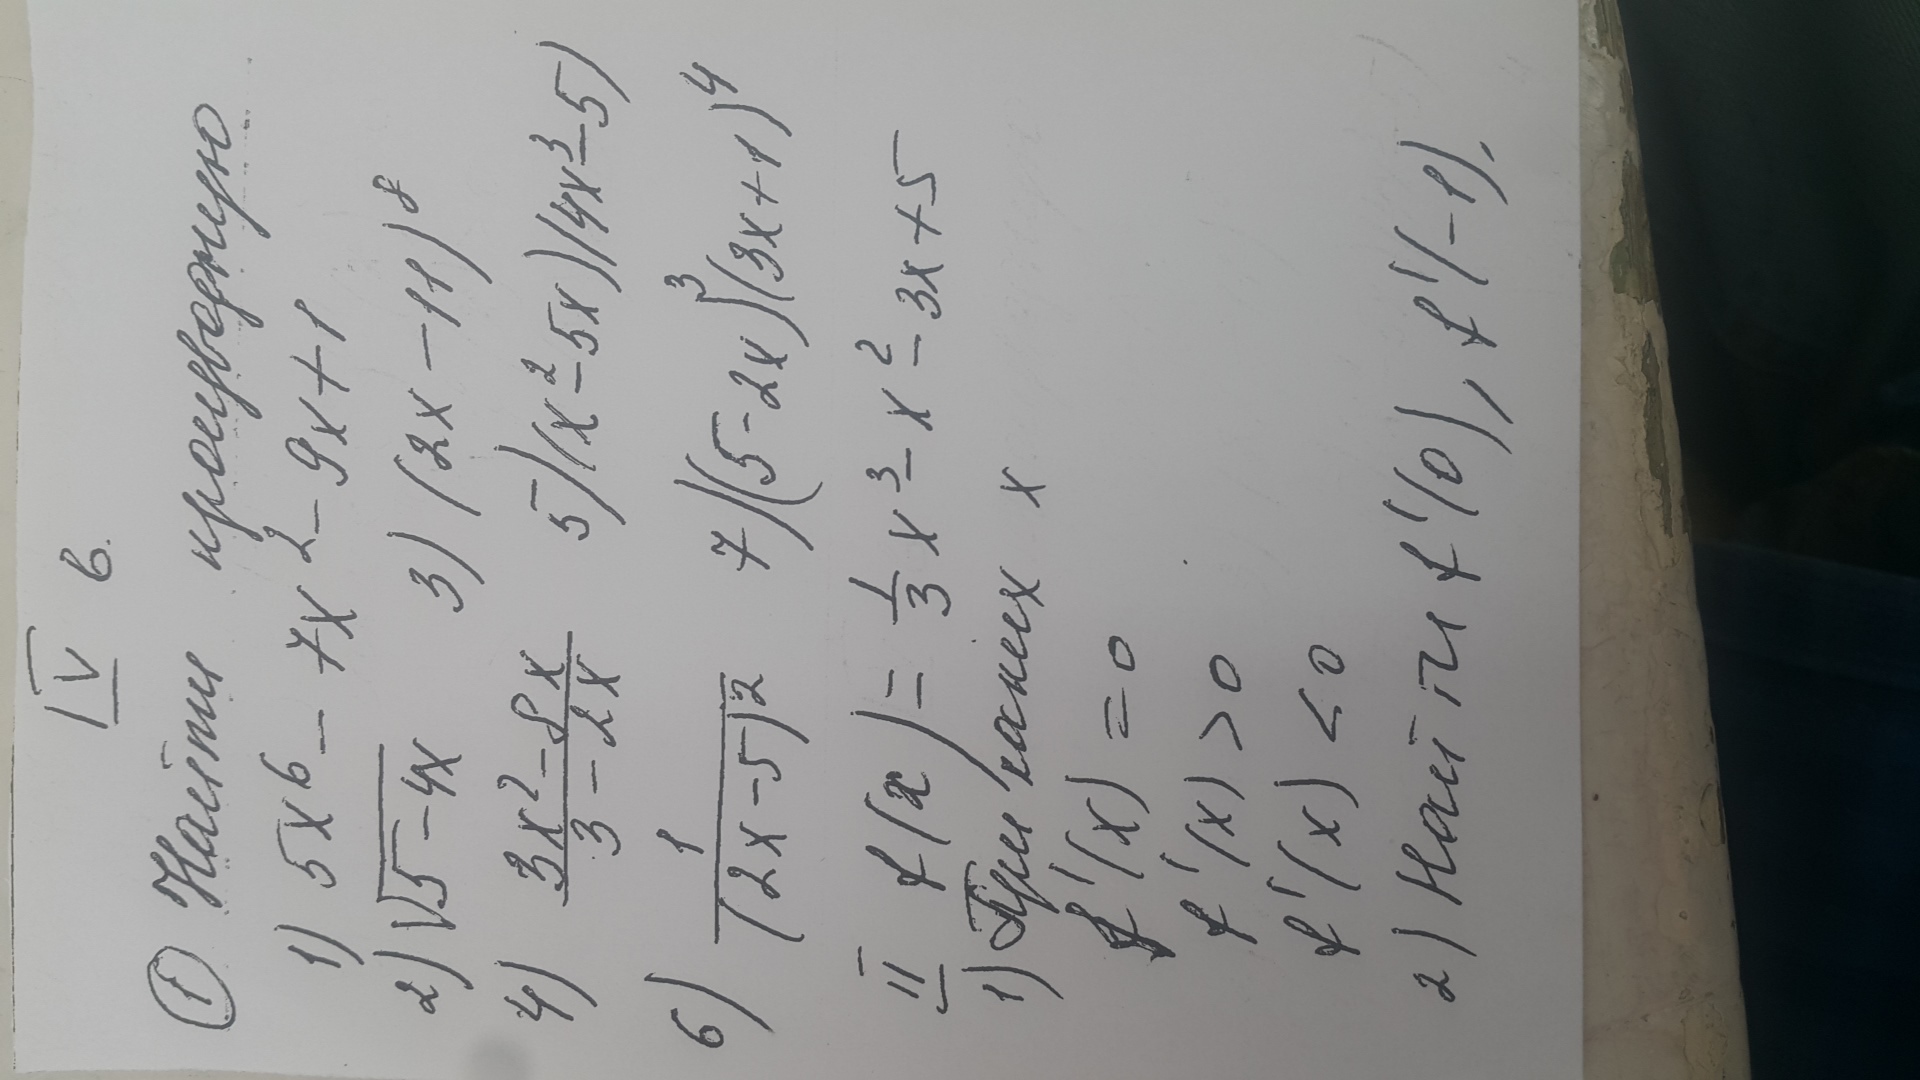 IV в.
① Найти производную
1) 5x⁶ - 7x² - 9x + 1
2) √(5-4x) 3) (2x - 11)⁸
4) (3x² - 8x)/(3 - 2x) 5) (x² - 5x)(4x³ - 5)
6) 1/(2x-5)² 7) (5-2x)³(3x+1)⁴
II f(x) = 1/3 x³ - x² - 3x + 5
1) При каких x
f'(x) = 0
f'(x) > 0
f'(x) < 0
2) Найти f'(0), f'(-1).